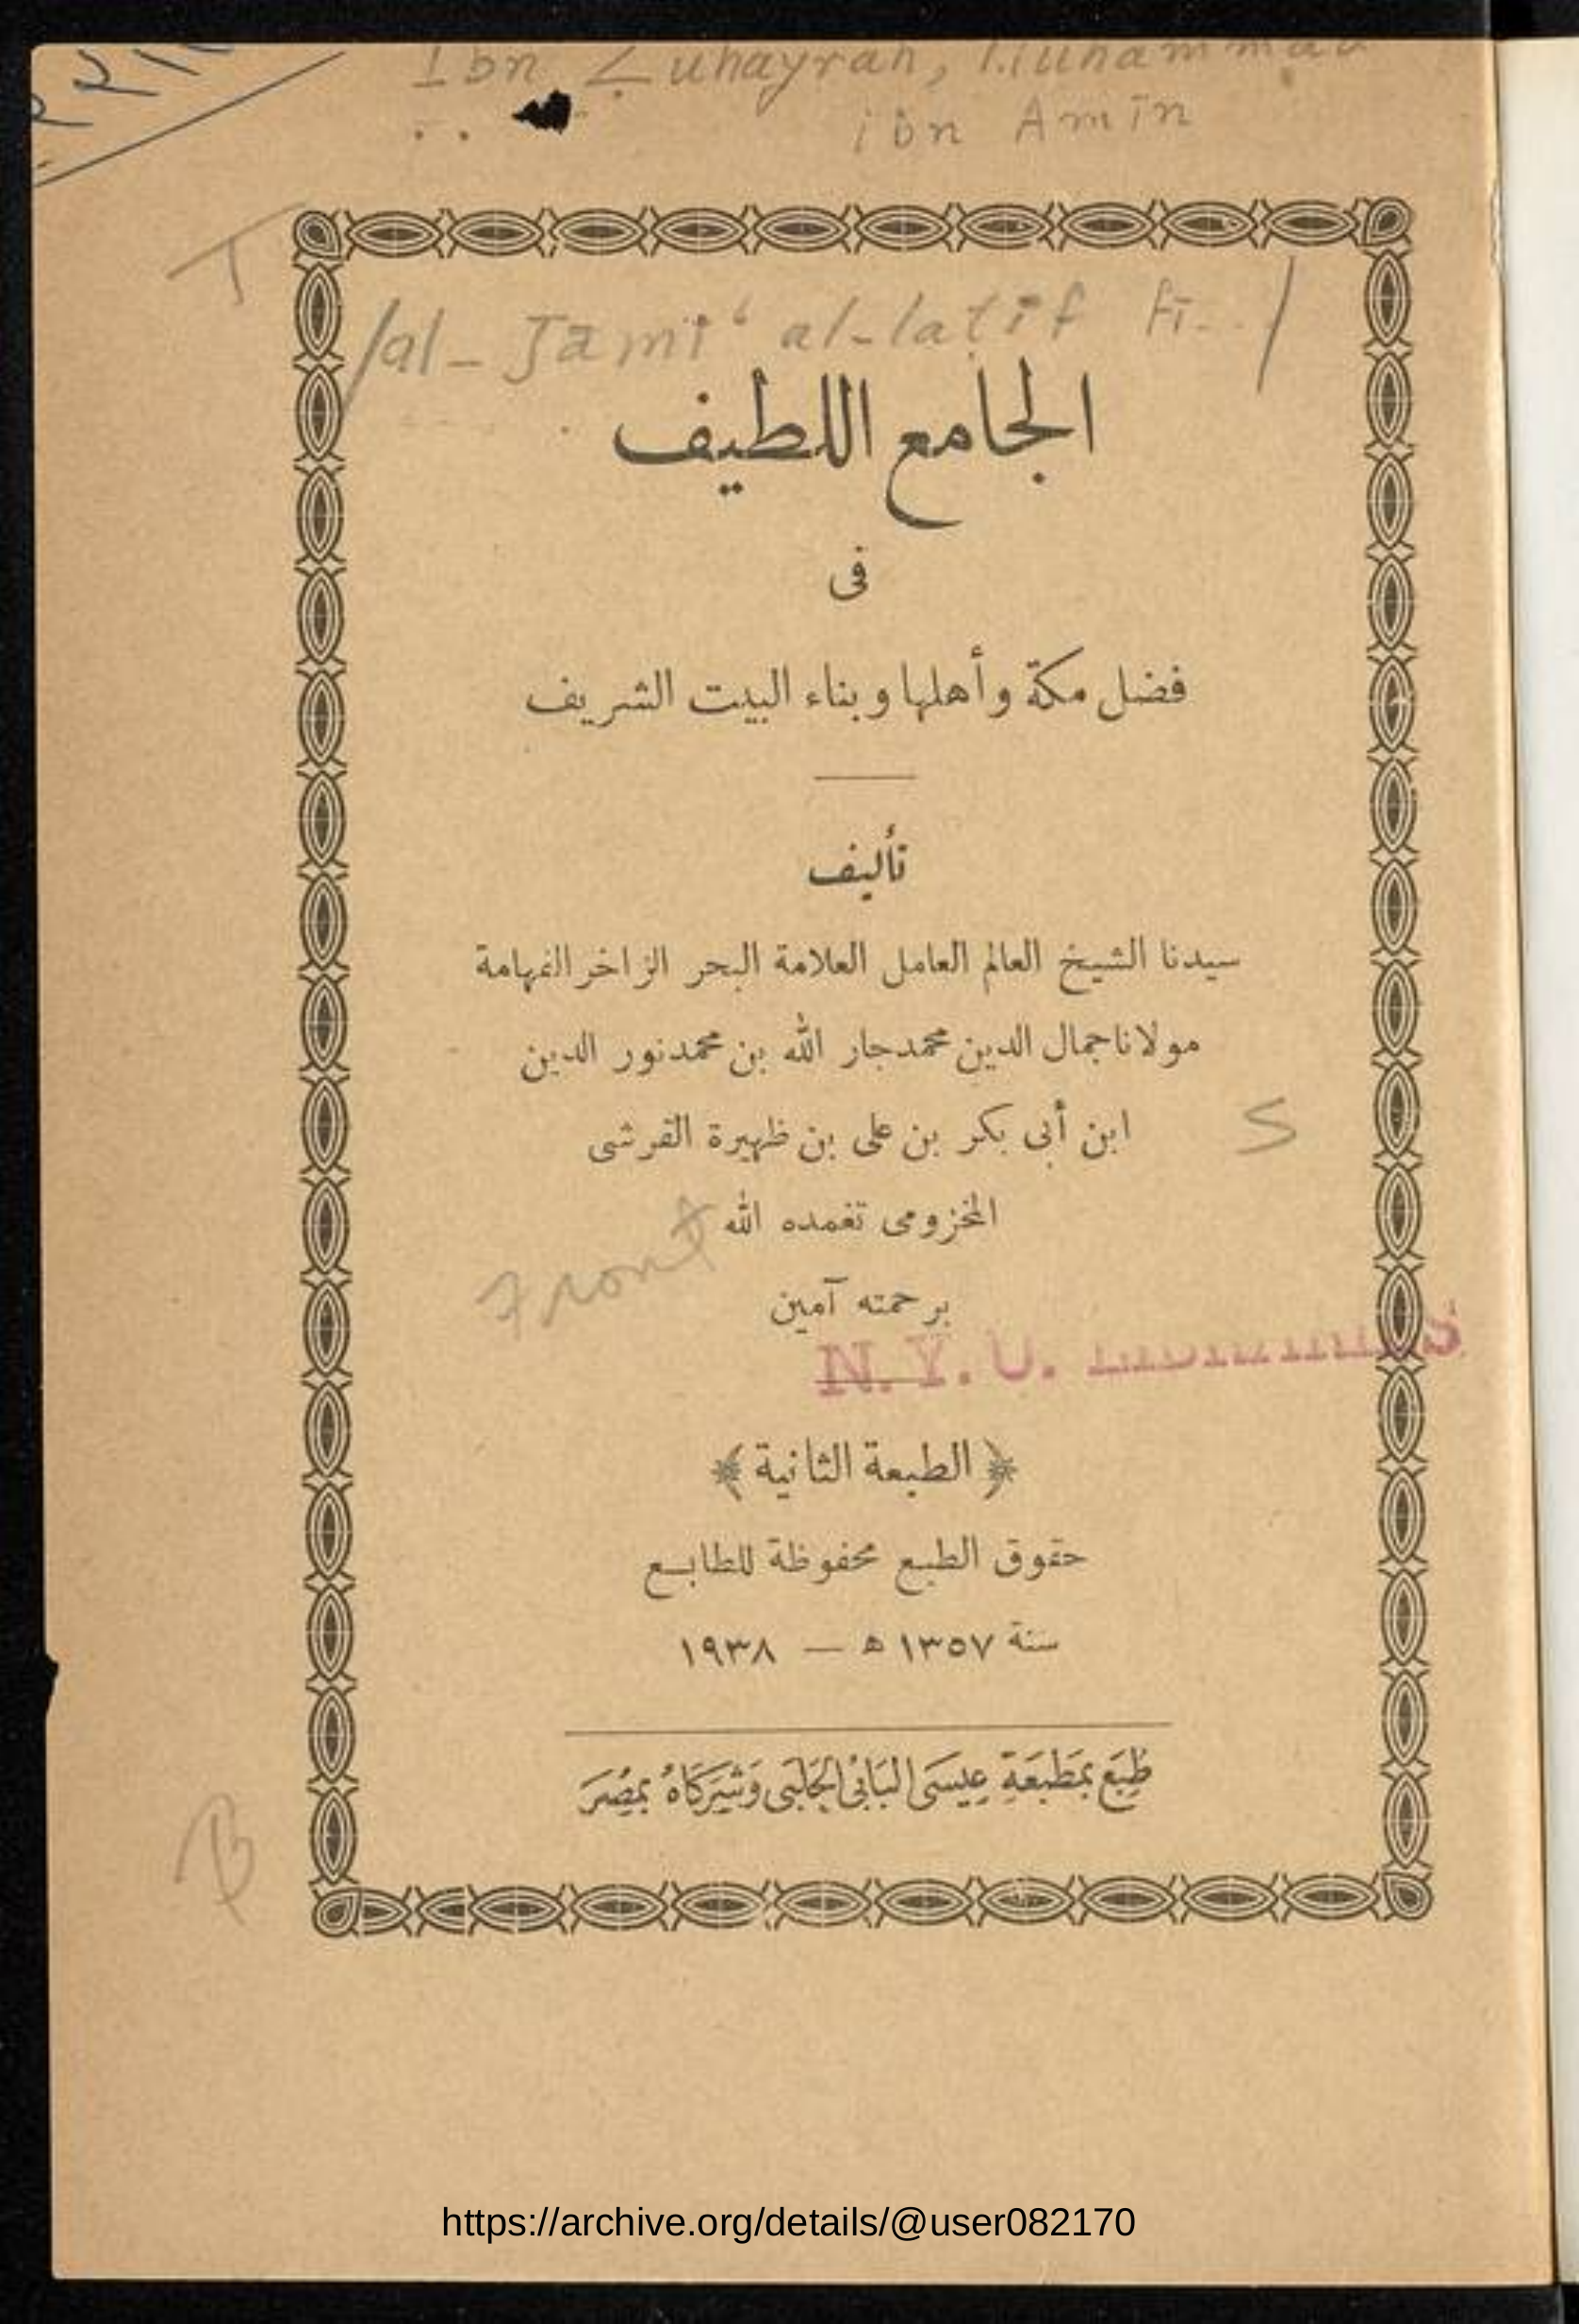 Ibn Zuhayrah, Muhammad
ibn Amīn
T
/al-Jāmiʻ al-laṭīf fī../
الجامع اللطيف
فى
فضل مكة وأهلها وبناء البيت الشريف
تأليف
سيدنا الشيخ العالم العامل العلامة البحر الزاخر الفهامة
مولانا جمال الدين محمد جار الله بن محمد نور الدين
ابن أبى بكر بن على بن ظهيرة القرشى
S
المخزومى تغمده الله
Front
برحمته آمين
N. Y. U. LIBRARIES
﴿ الطبعة الثانية ﴾
حقوق الطبع محفوظة للطابع
سنة ١٣٥٧ ه — ١٩٣٨
طُبِعَ بِمَطْبَعَةِ عِيسَى البَابِى الحَلَبِى وَشُرَكَاهُ بِمِصْرَ
B
https://archive.org/details/@user082170